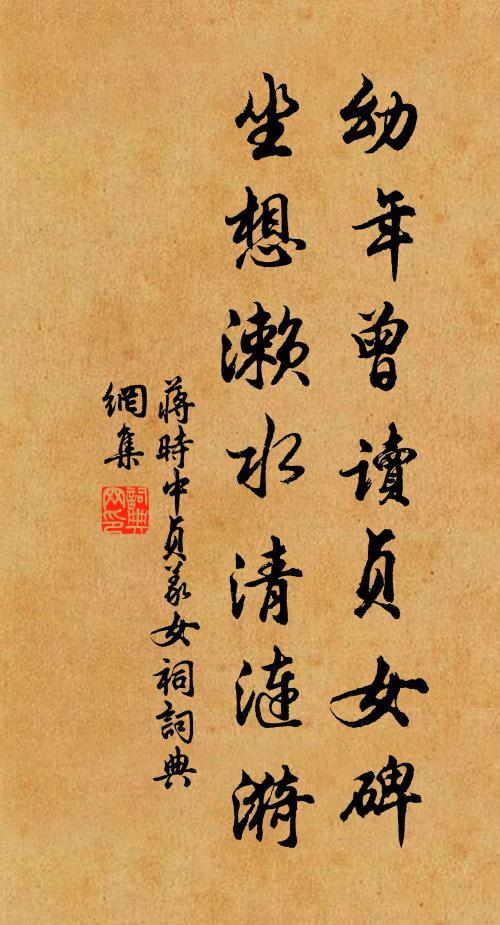 幼年曾讀貞女碑
坐想瀨水清漣漪
蔣時中貞義女祠詞典
網集
詞典
网印